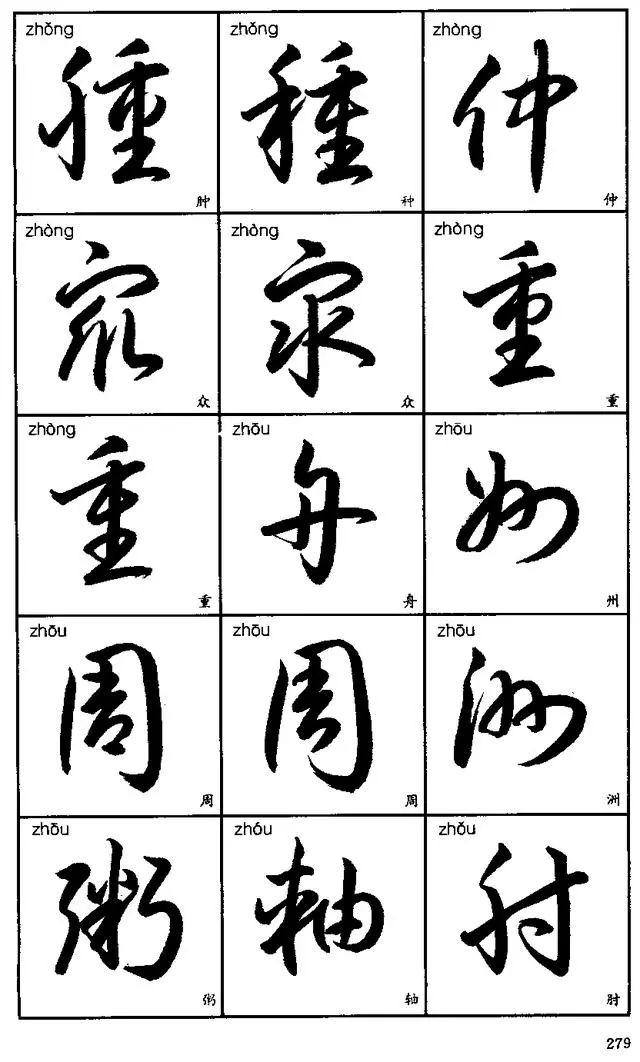 zhǒng zhǒng zhòng
腫 種 仲
肿 种 仲
zhòng zhòng zhòng
衆 衆 重
众 众 重
zhòng zhōu zhōu
重 舟 州
重 舟 州
zhōu zhōu zhōu
周 周 洲
周 周 洲
zhōu zhóu zhǒu
粥 軸 肘
粥 轴 肘
279